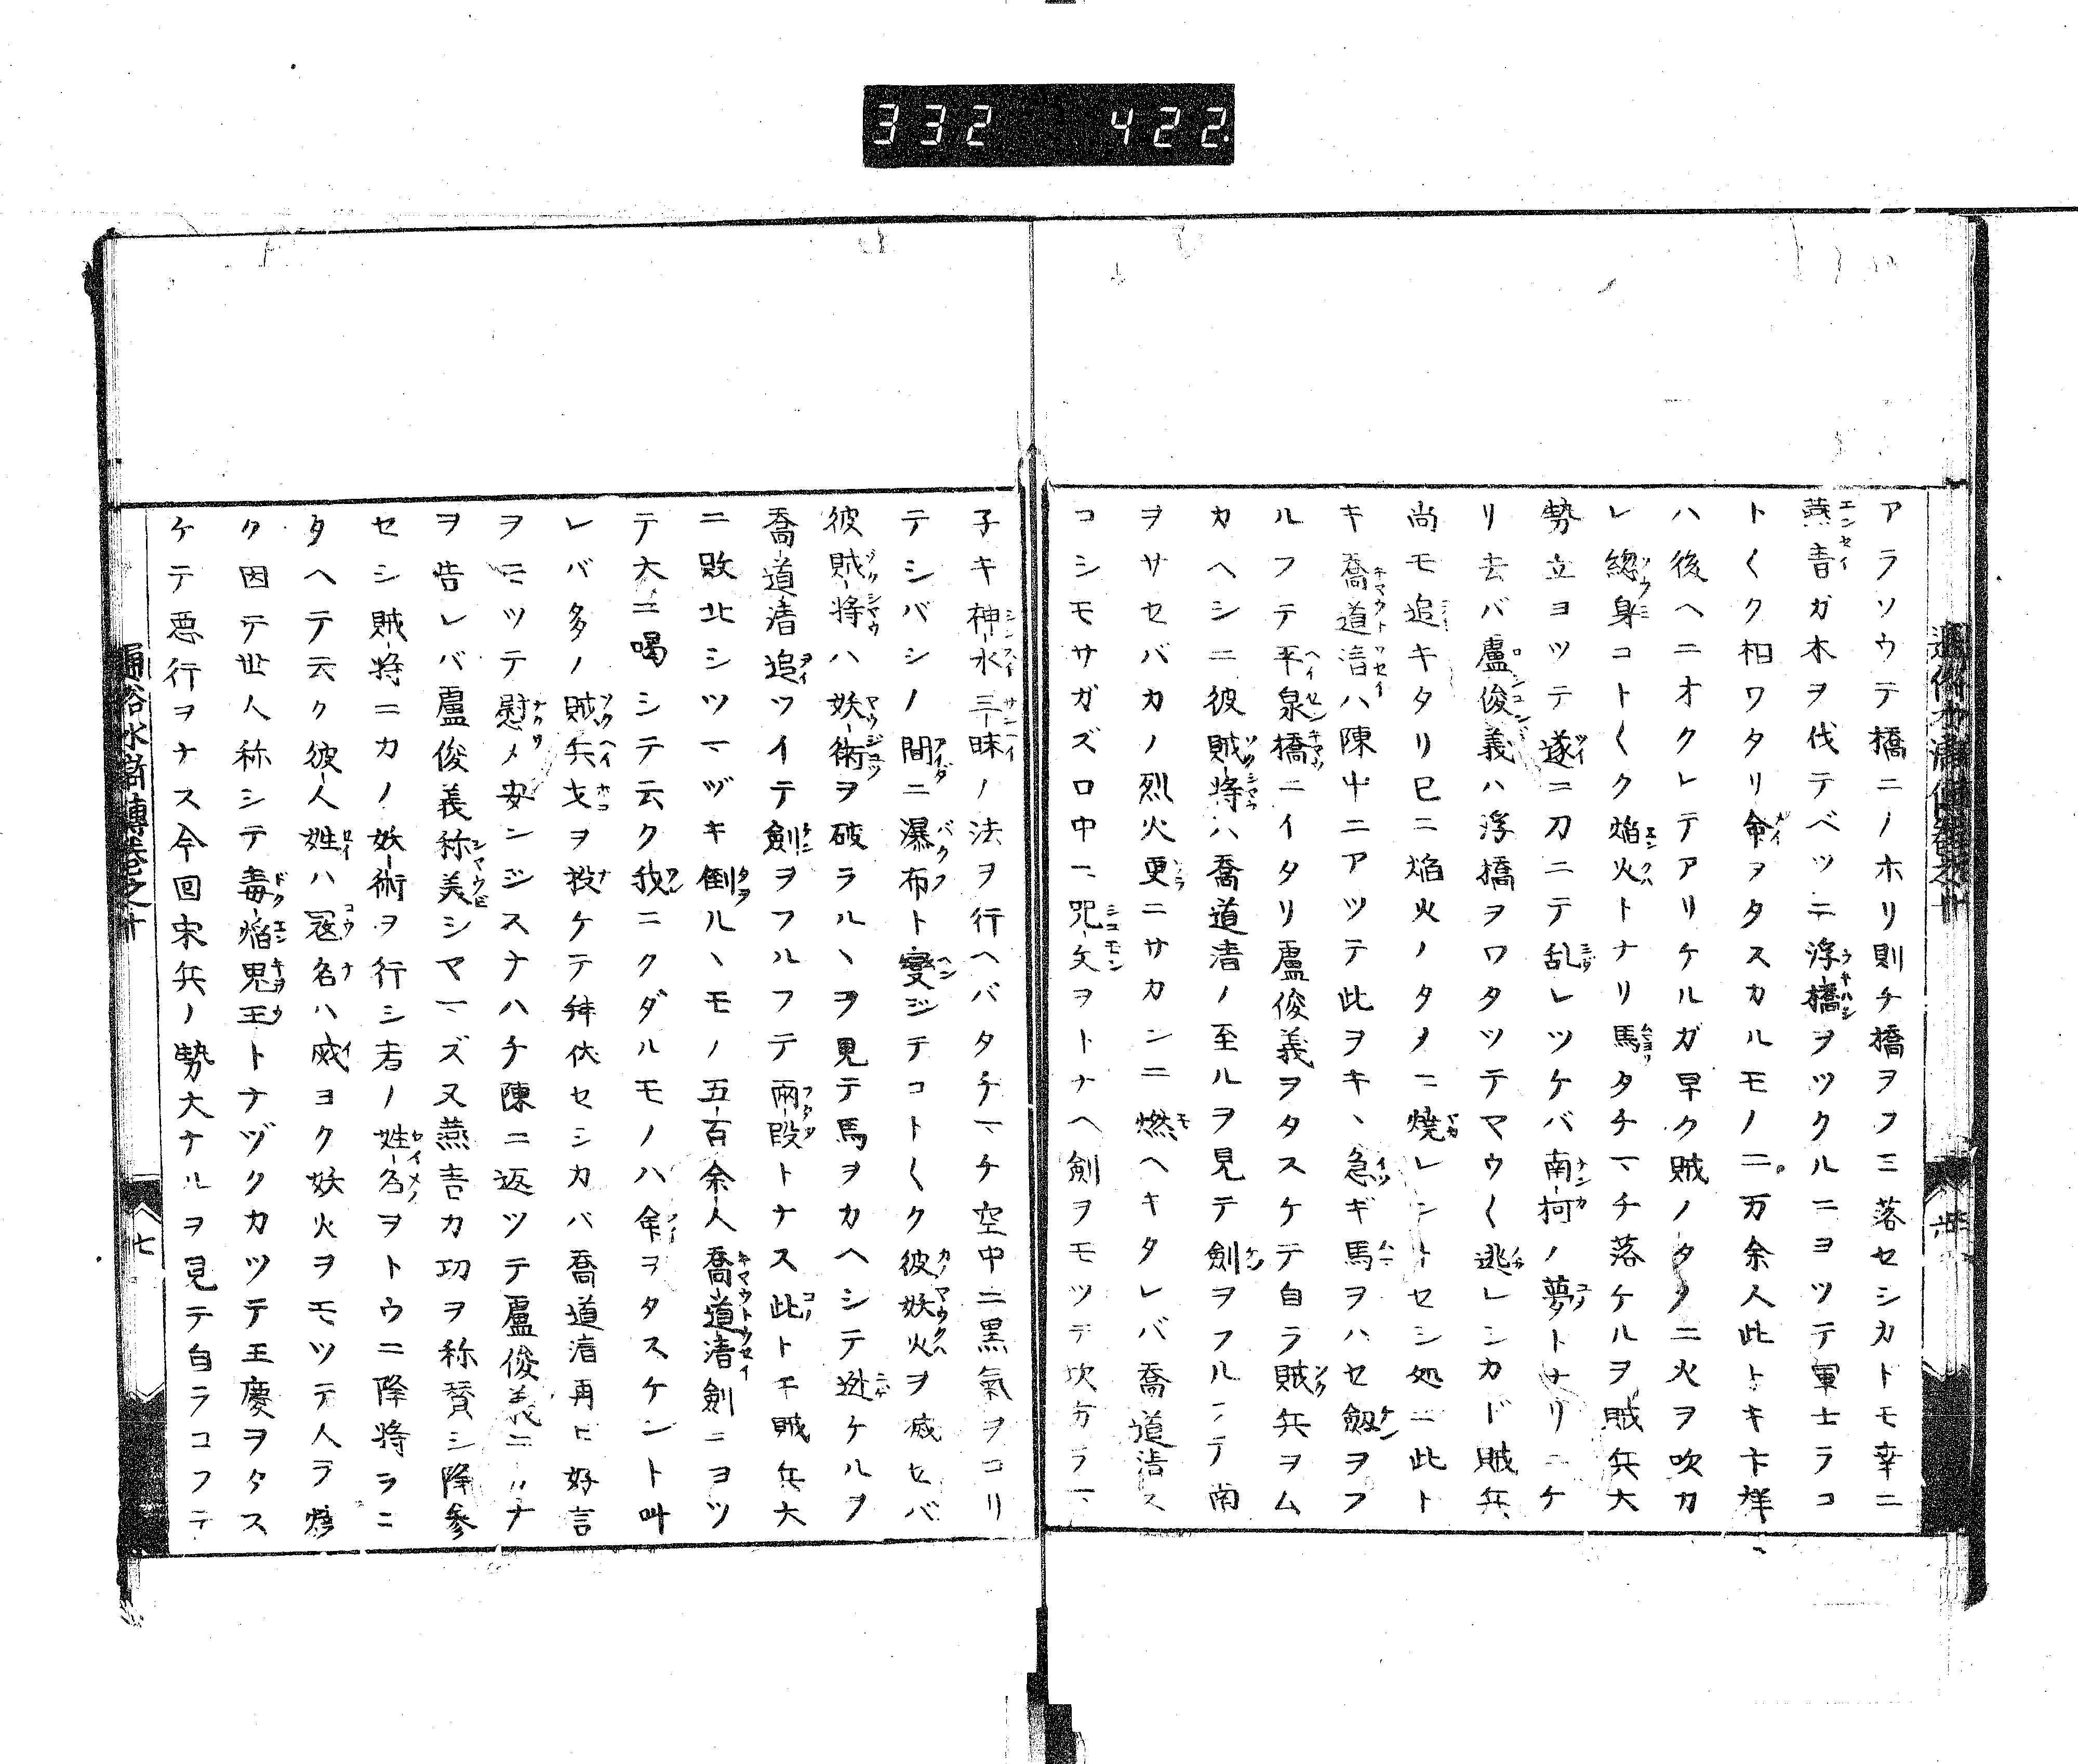 332 422
アラソウテ橋ニノホリ則チ橋ヲフミ落セシカトモ幸ニ
燕青ガ木ヲ伐テベツニ浮橋ヲツクルニヨツテ軍士ラコ
トく\ク相ワタリ命ヲタスカルモノ二万余人此トキ卞祥
ハ後ヘニオクレテアリケルガ早ク賊ノタメニ火ヲ吹カ
レ総身コトく\ク焔火トナリ馬タチマチ落ケルヲ賊兵大
勢立ヨツテ遂ニ刀ニテ乱レツケバ南柯ノ夢トナリニケ
リ去バ盧俊義ハ浮橋ヲワタツテマウく\逃レシカド賊兵
尚モ追キタリ已ニ焔火ノタメニ焼レントセシ処ニ此ト
キ喬道清ハ陳中ニアツテ此ヲキヽ急ギ馬ヲハセ劔ヲフ
ルフテ平泉橋ニイタリ盧俊義ヲタスケテ自ラ賊兵ヲム
カヘシニ彼賊将ハ喬道清ノ至ルヲ見テ劍ヲフルフテ南
ヲサセバカノ烈火更ニサカンニ燃ヘキタレバ喬道清ス
コシモサガズロ中ニ咒文ヲトナヘ劍ヲモツテ坎方ラマ
子キ神水三昧ノ法ヲ行ヘバタチマチ空中ニ黒氣ヲコリ
テシバシノ間ニ瀑布ト變ジテコトく\ク彼妖火ヲ滅セバ
彼賊将ハ妖術ヲ破ラルヽヲ見テ馬ヲカヘシテ逃ケルヲ
喬道清追ツイテ劍ヲフルフテ兩段トナス此トキ賊兵大
ニ敗北シツマヅキ倒ルヽモノ五百余人喬道清劍ニヨツ
テ大ニ喝シテ云ク我ニクダルモノハ命ヲタスケント叫
レバ多ノ賊兵戈ヲ投ケテ拜伏セシカバ喬道清再ヒ好言
ヲモツテ慰メ安ンジスナハチ陳ニ返ツテ盧俊義ニカナ
ヲ告レバ盧俊義称美シマズ又燕青カ功ヲ称賛シ降参
セシ賊将ニカノ妖術ヲ行シ者ノ姓名ヲトウニ降将ラニ
タヘテ云ク彼人姓ハ寇名ハ威ヨク妖火ヲモツテ人ラ焼
ク因テ世人称シテ毒焔鬼王トナヅクカツテ王慶ヲタス
ケテ悪行ヲナス今回宋兵ノ勢大ナルヲ見テ自ラコフテ
通俗水滸傳卷之十
七